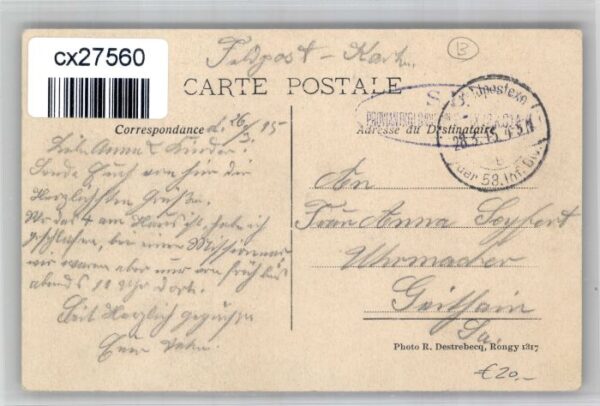 cx27560
Feldpost - Karte
B
CARTE POSTALE
Correspondance
d. 26/3. 15
Adresse du Destinataire
S.B.
Feldpostexp.
28.3.15. 4-5 N
der 58. Inf. Div.
Liebe Anna & Kinder!
Sende Euch von hier die
herzlichsten Grüße.
Wo das + am Haus ist, habe ich
geschlafen, bei einem Missionar,
wir waren aber nur von früh bis
abends 10 Uhr dort.
Seit herzlich gegrüßt
Euer
An
Frau Anna Seyfert
Uhrmacher
Geithain
Sa.
Photo R. Destrebecq, Rongy 1317
€20,-